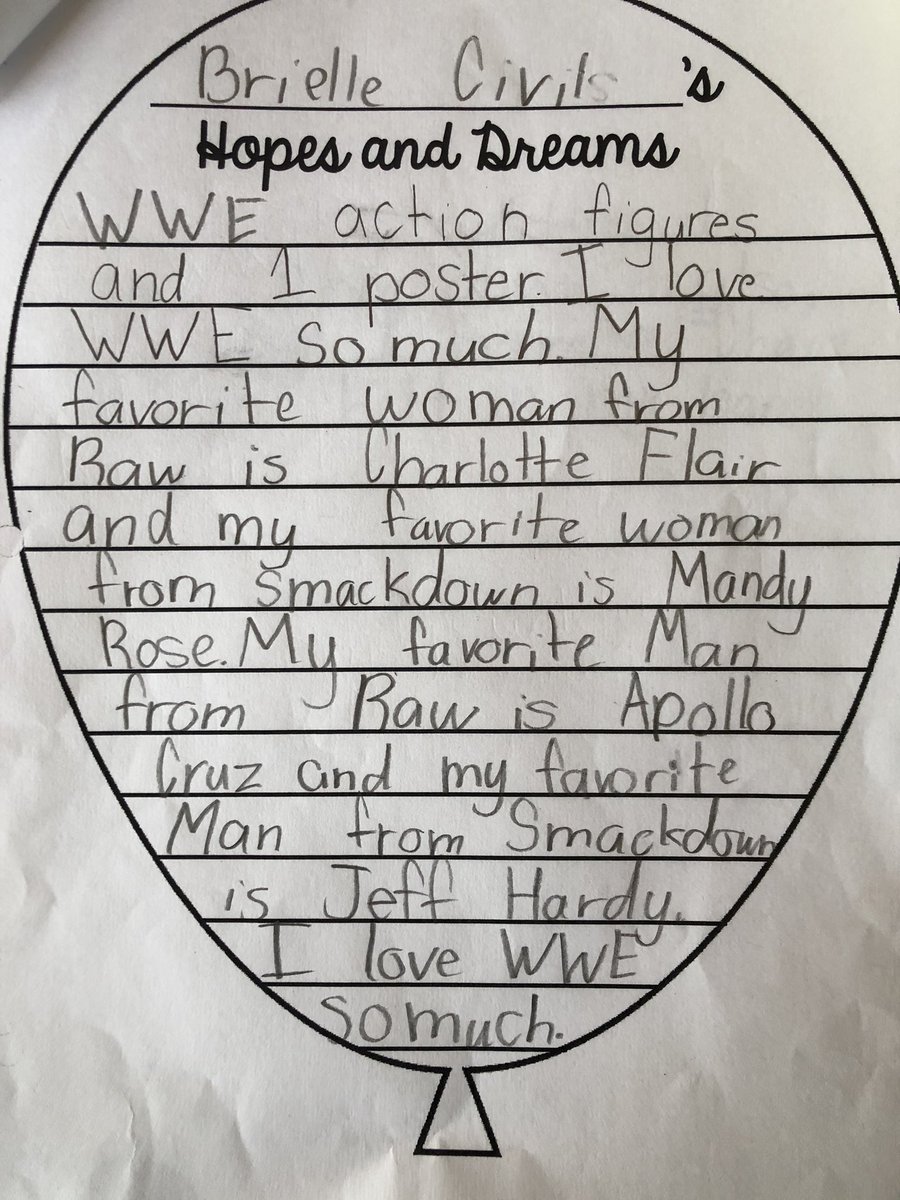 Brielle Civils 's
Hopes and Dreams
WWE action figures
and 1 poster. I love
WWE so much. My
favorite woman from
Raw is Charlotte Flair
and my favorite woman
from Smackdown is Mandy
Rose. My favorite Man
from Raw is Apollo
Cruz and my favorite
Man from Smackdown
is Jeff Hardy.
I love WWE
so much.